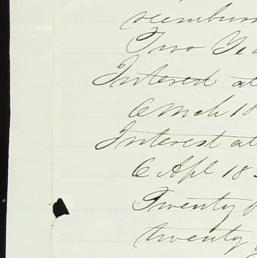 Two Ye
Interest at
6 Mch 18
Interest at
6 Apl 18
Twenty
twenty